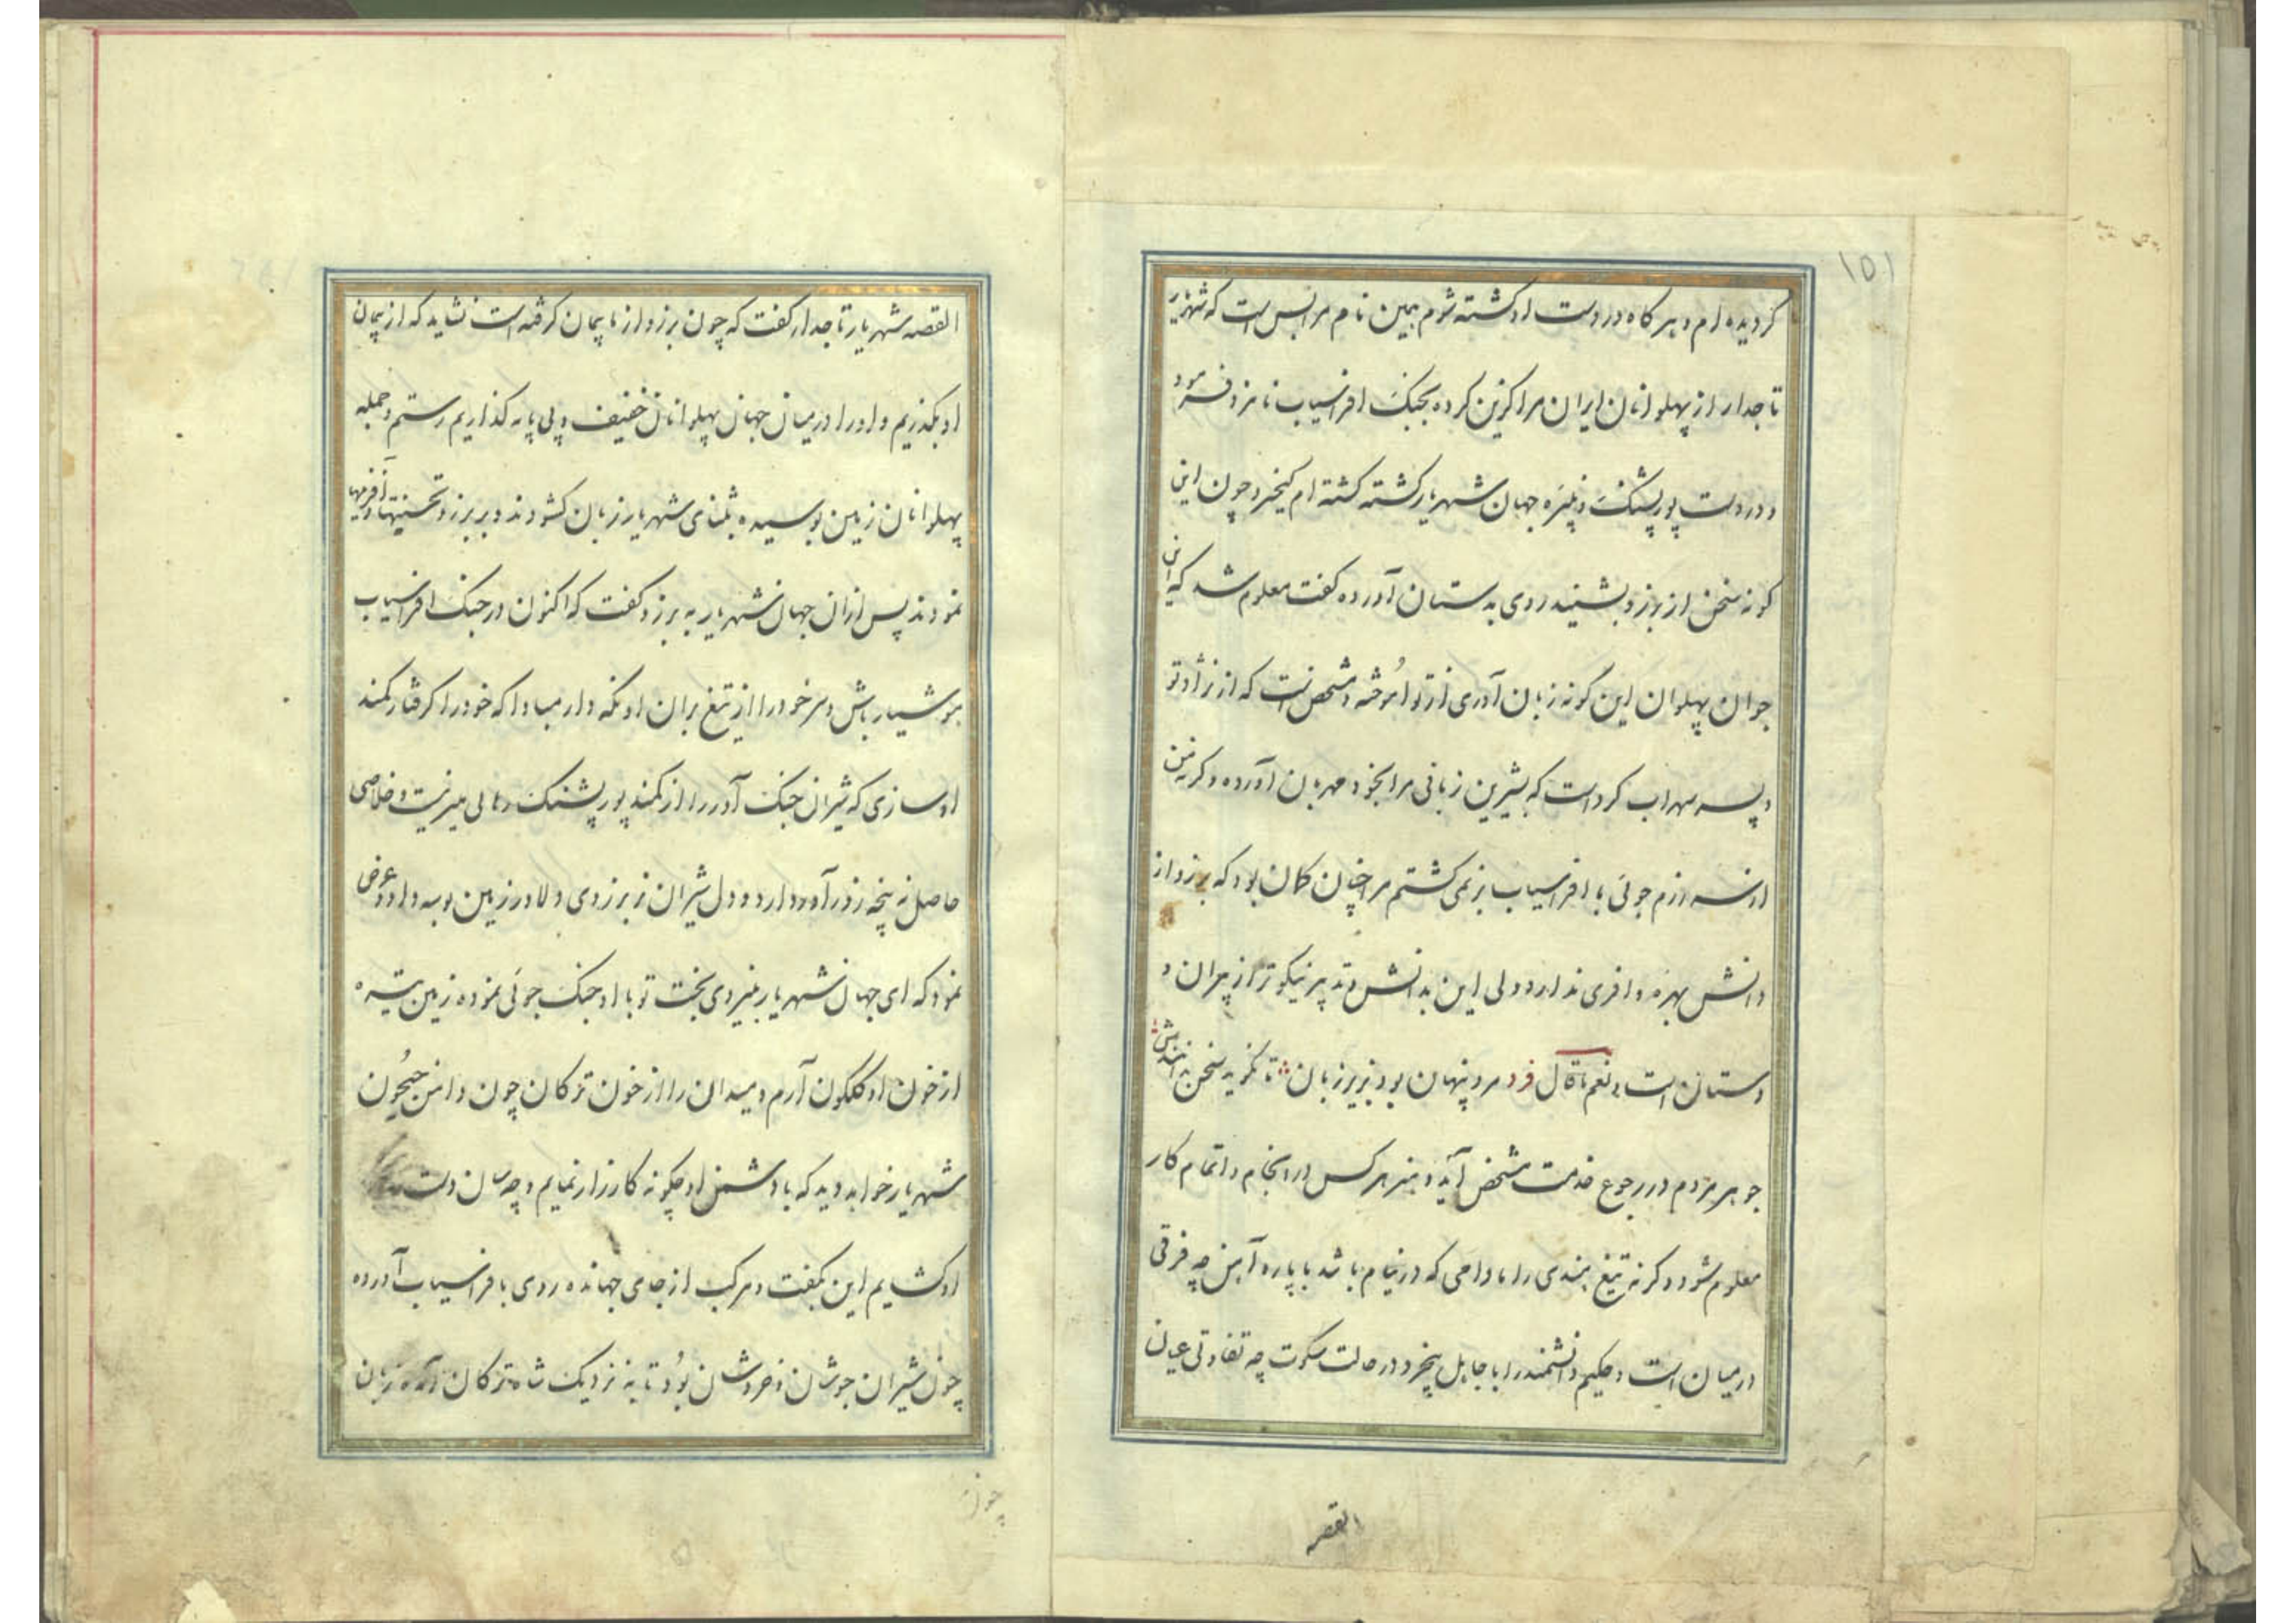 ١٥١
کردیده ام و هر کاه در دست او کشته شوم همین نام مرا بس است که شهریار
تاجدار از پهلوانان ایران مرا کزین کرده بجنک افراسیاب نامزد فرمود
و در دست پور پشنک و نبیره جهان شهریار کشته کشته ام کیخسرو چون این
کونه سخن از برزو بشنید روی بدستان آورده کفت معلوم شد که این
جوان پهلوان این کونه زبان آوری از تو آموخته و مشخص است که از نژاد تو
و پسر سهراب کرد است که بشیرین زبانی مرا بخود مهربان آورده و کرنه من
از رزم جوئی با افراسیاب بر نمی کشتم مرا چنان کمان بود که برزو از
دانش بهره وافری ندارد ولی این بدانش و تدبیر نیکوتر از پیران و
دستان است و نعم ما قال فرد مرد پنهان بود بزیر زبان تا نکوید سخن ندانندش
جوهر مردم در رجوع خدمت مشخص آید و هنر هر کس در انجام و اتمام کار
معلوم شود و کرنه تیغ هندی را مادامی که در نیام باشد با پاره آهن چه فرقی
در میان است و حکیم دانشمند را با جاهل بیخرد در حالت سکوت چه تفاوتی عیان
القصه
القصه شهریار تاجدار کفت که چون برزو از ما پیمان کرفته است نشاید که از پیمان
او بکذریم و او را در میان جهان پهلوانان خفیف و بی پایه کذاریم رستم و جمله
پهلوانان زمین بوسیده بثنای شهریار زبان کشودند و بر برزو تحسینها و آفرینها
نمودند پس از ان جهان شهریار به برزو کفت که اکنون در جنک افراسیاب
هوشیار باش و سر خود را از تیغ بران او نکه دار مبادا که خود را کرفتار کمند
او سازی که شیران جنک آور را از کمند پور پشنک رهائی میسر نیست و خلاصی
حاصل نه پنجه زورآور دارد و دل شیران نر برزوی دلاور زمین بوسه داد و عرض
نمود که ای جهان شهریار بنیروی بخت تو با او جنک جوئی نموده زمین تیره
از خون او کلکون آرم و میدان را از خون ترکان چون دامن جیحون
شهریار خواهد دید که با دشمن او چکونه کارزار نمایم و چه سان دست
او کشایم این بکفت و مرکب از جای جهانده روی بافراسیاب آورده
چون شیران جوشان و خروشان بود تا به نزدیک شاه ترکان آمده زبان
چون